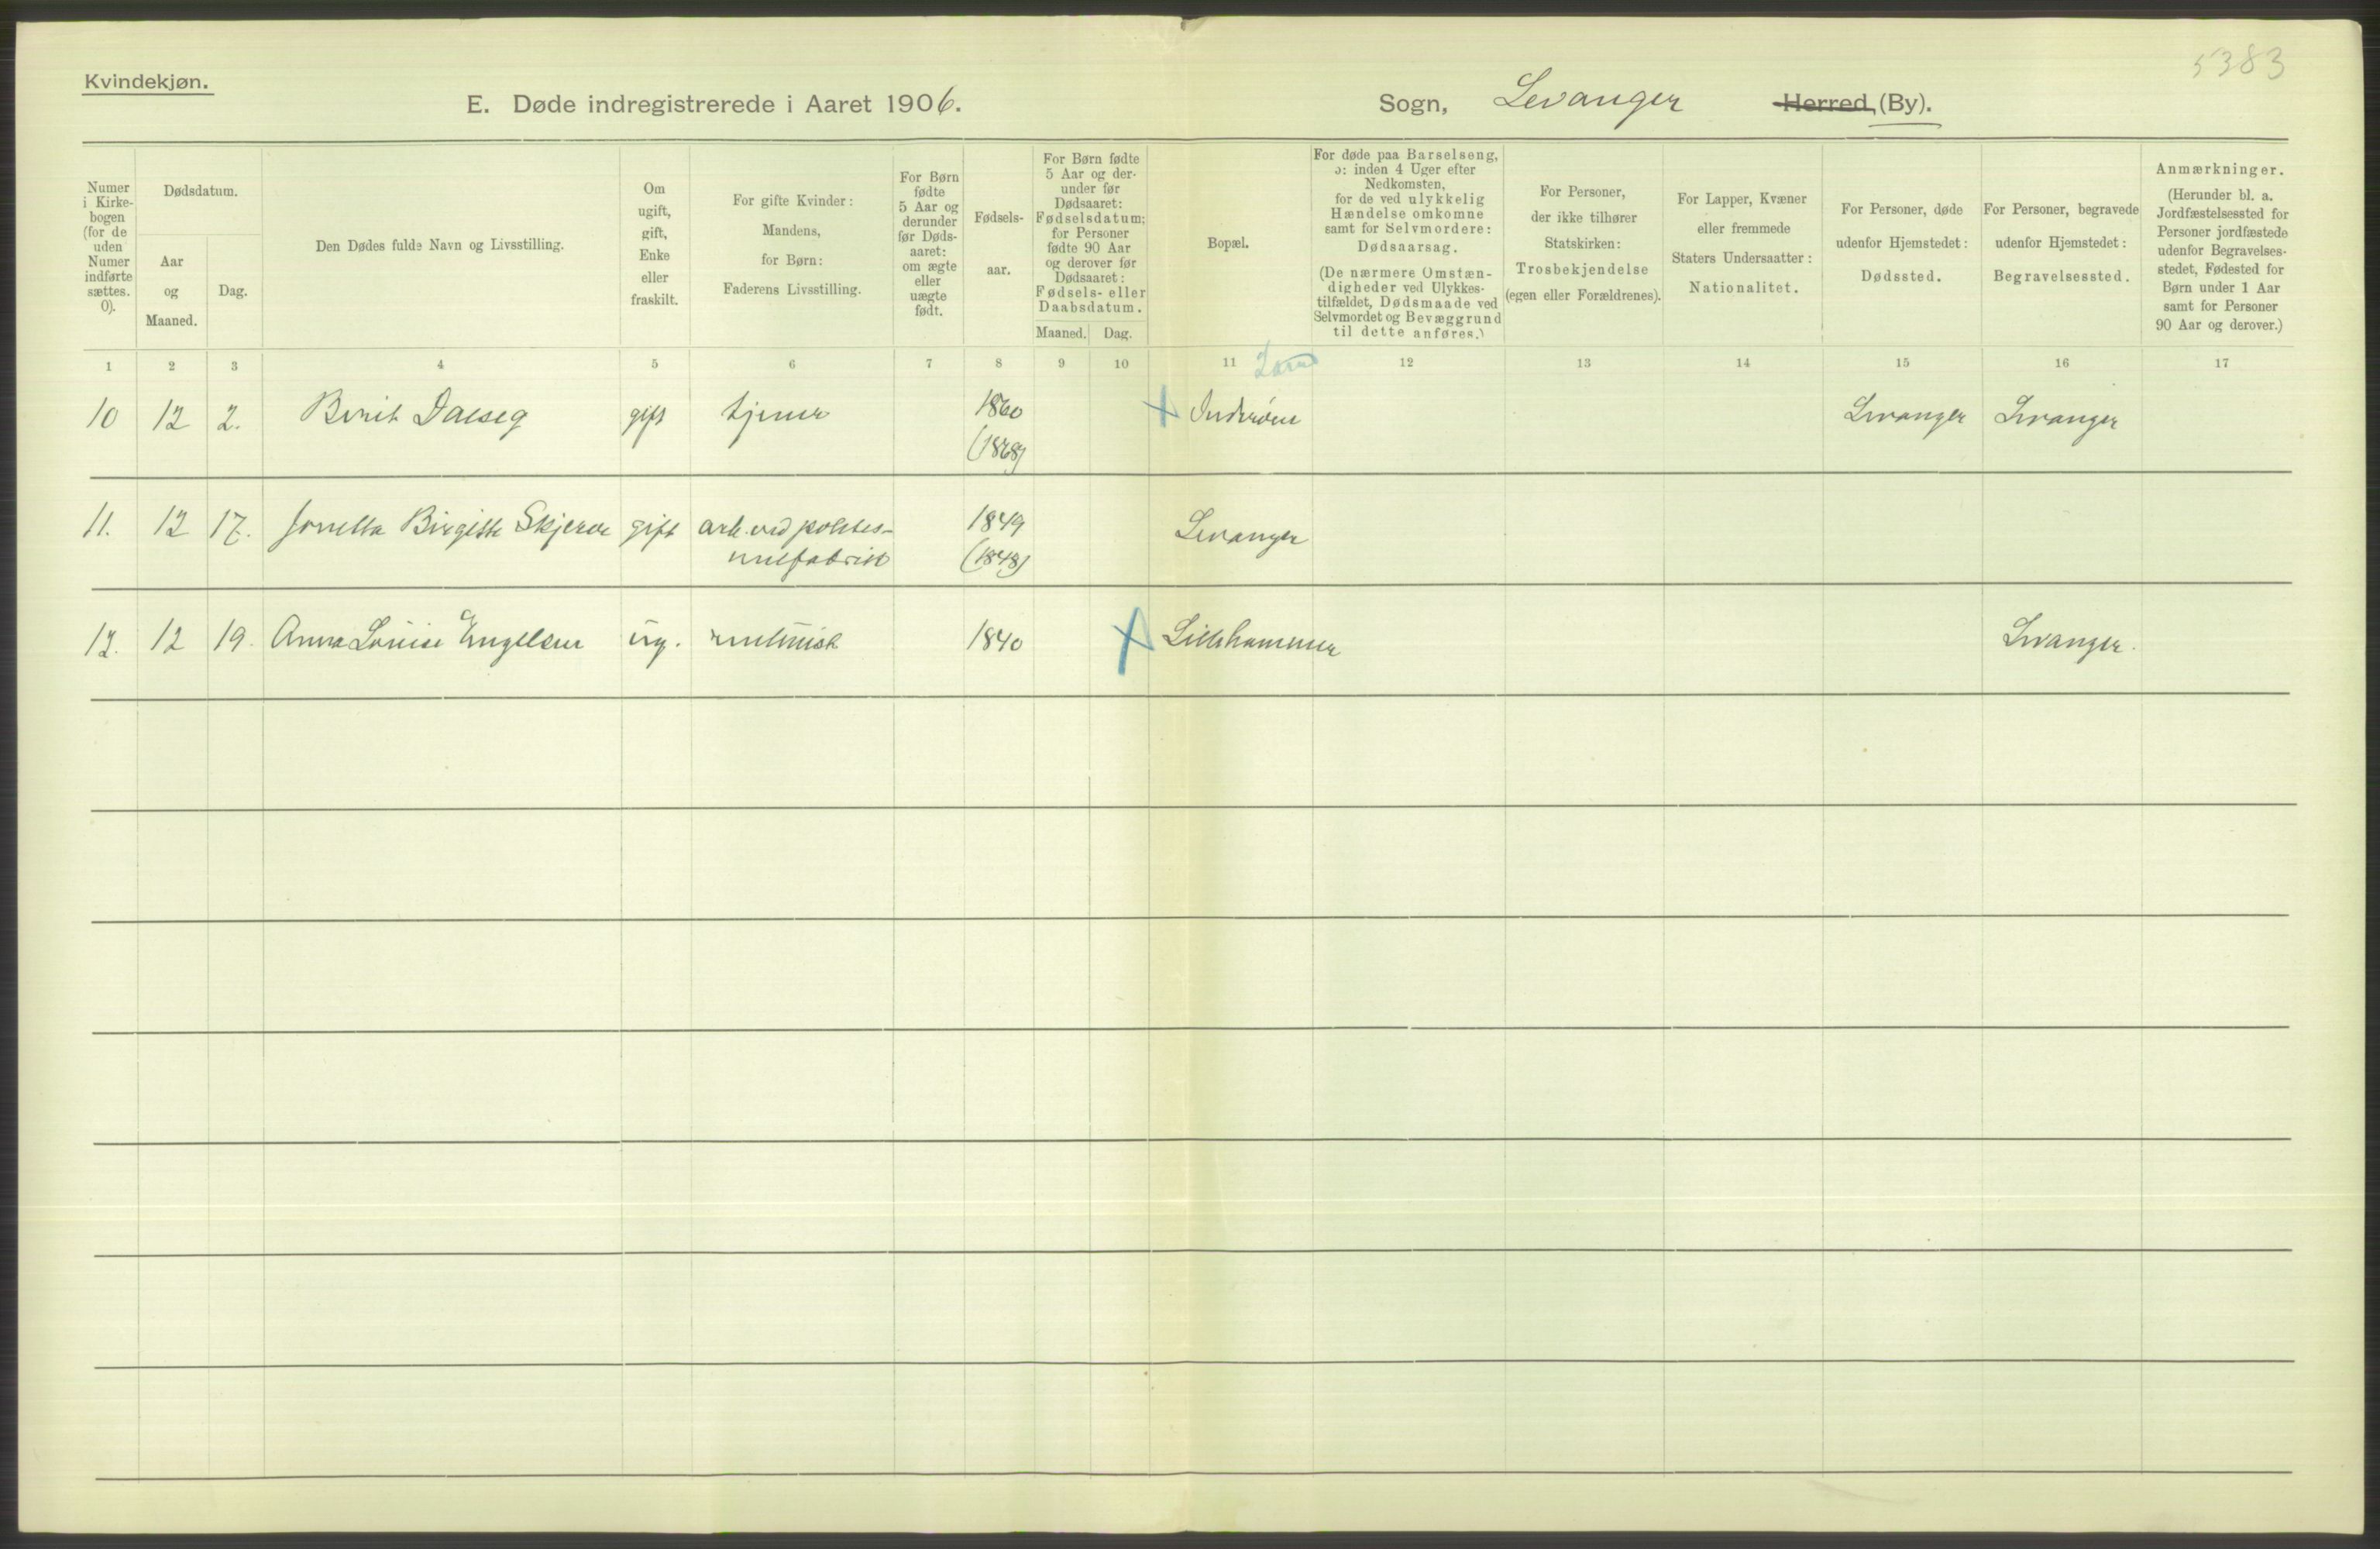 5383
Kvindekjøn.
E. Døde indregistrerede i Aaret 1906.
Sogn, Levanger Herred, (By).
Numer i Kirke- bogen (for de uden Numer indførte sættes. 0).
Dødsdatum.
Aar og Maaned.
Dag.
Den Dødes fulde Navn og Livsstilling.
Om ugift, gift, Enke eller fraskilt.
For gifte Kvinder: Mandens, for Børn: Faderens Livsstilling.
For Børn fødte 5 Aar og derunder før Døds- aaret: om ægte eller uægte født.
Fødsels- aar.
For Børn fødte 5 Aar og der- under før Dødsaaret: Fødselsdatum; for Personer fødte 90 Aar og derover før Dødsaaret: Fødsels- eller Daabsdatum.
Maaned. Dag.
Bopæl.
For døde paa Barselseng, ɔ: inden 4 Uger efter Nedkomsten, for de ved ulykkelig Hændelse omkomne samt for Selvmordere: Dødsaarsag.
(De nærmere Omstæn- digheder ved Ulykkes- tilfældet, Dødsmaade ved Selvmordet og Bevæggrund til dette anføres.)
For Personer, der ikke tilhører Statskirken: Trosbekjendelse (egen eller Forældrenes).
For Lapper, Kvæner eller fremmede Staters Undersaatter: Nationalitet.
For Personer, døde udenfor Hjemstedet: Dødssted.
For Personer, begravede udenfor Hjemstedet: Begravelsessted.
Anmærkninger.
(Herunder bl. a. Jordfæstelsessted for Personer jordfæstede udenfor Begravelses- stedet, Fødested for Børn under 1 Aar samt for Personer 90 Aar og derover.)
1 2 3 4 5 6 7 8 9 10 11 12 13 14 15 16 17
10 12 2. Berit Dalseg gift tjener 1860 Inderøen Levanger Levanger
(1868)
11. 12 17. Jonetta Birgitte Skjerve gift arb. ved 1849 Levanger
(1848)
12. 12 19. Anna Louise Engelsen ug. 1840 Lillehammer Levanger.